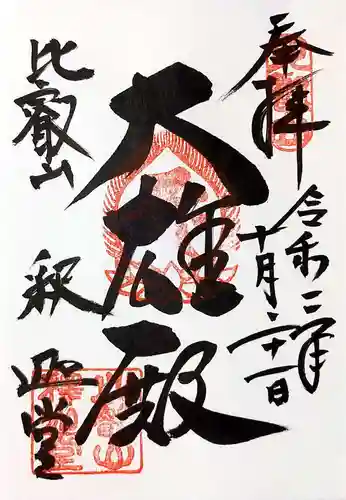 奉拝
令和三年
十月二十一日
大雄殿
比叡山
釈迦堂